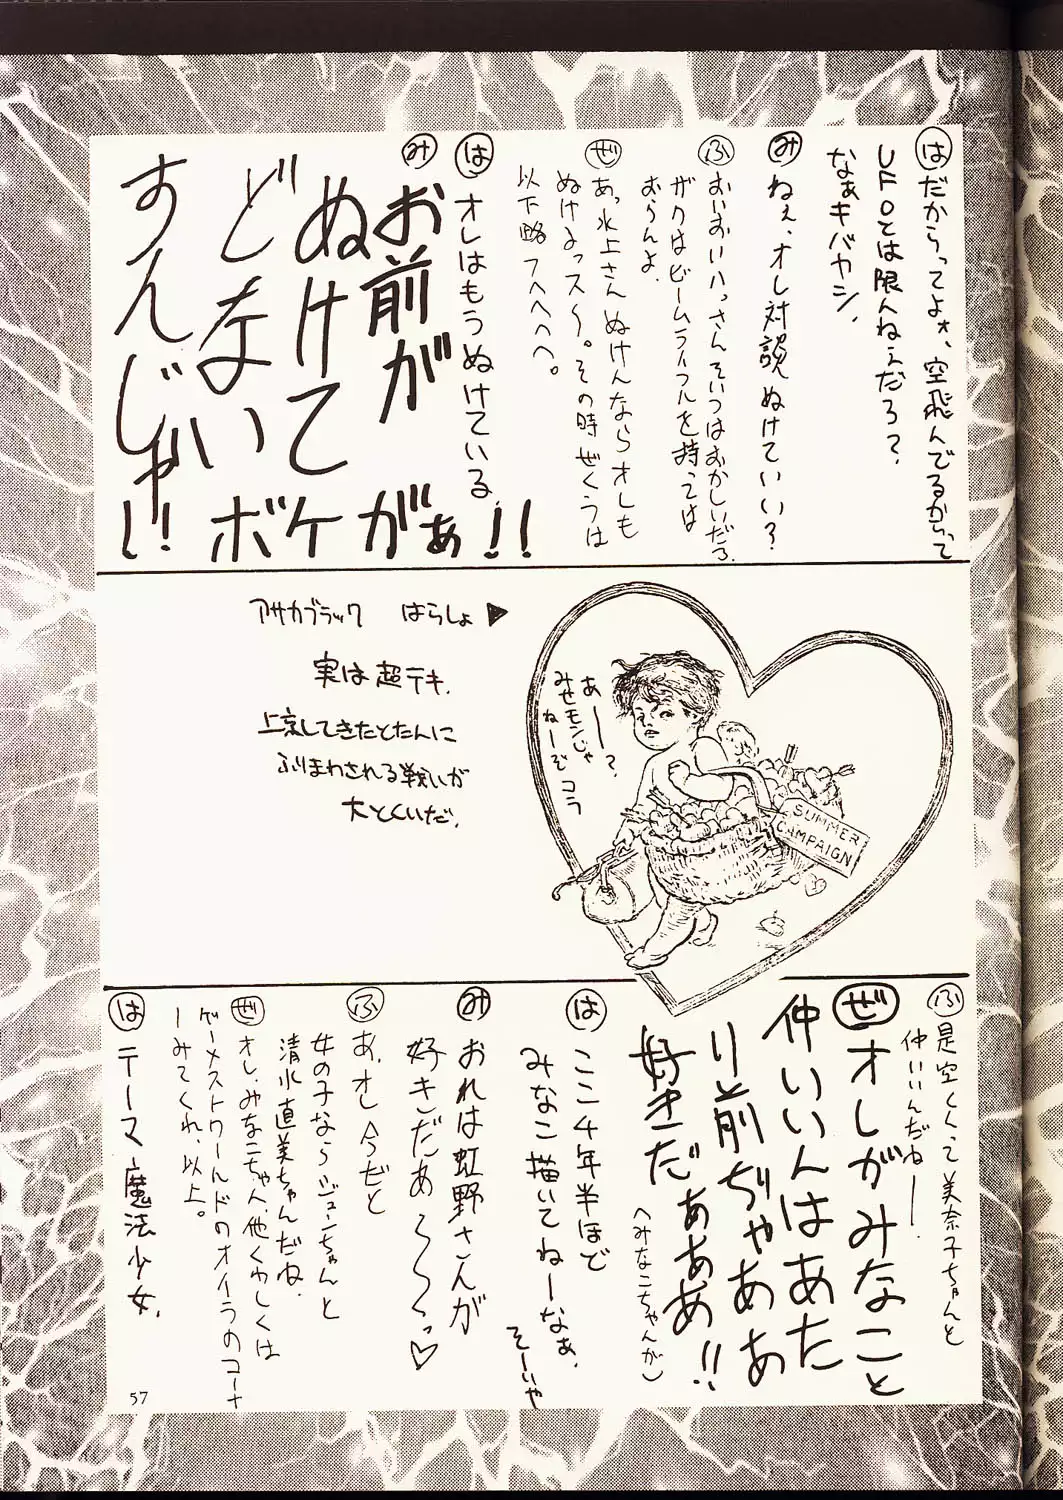 は だからってよォ、空飛んでるからって
UFOとは限んねぇだろ?
なぁキバヤシ、
み ねぇ、オレ対談ぬけていい?
ふ おいおいハっさんそいつはおかしいだろ、
ザクはビームライフルを持っては
おらんよ、
ぜ あっ水上さんぬけんならオレも
ぬけるっス〜。その時ぜくうは
以下略フヘヘヘヘ。
は オレはもうぬけている、
み お前が
ぬけて
どないすんじゃい
!! ボケがぁ!!
アサカブラック はらしょ▶
実は超テキ、
上京してきたとたんに
ふりまわされる戦いが
大とくいだ、
あーー?、
みせモンじゃ
ねーぞコラ
SUMMER
CAMPAIGN
ふ 是空くくって美奈子ちゃんと
仲いいんだねー
ぜ オレがみなこと
仲いいんはあた
り前ぢゃああ
好きだぁああ!!
(みなこちゃんが)
は ここ4年半ほど
みなこ描いてねーなぁ、
そーいや
み おれは虹野さんが
好きだあ〜〜っ♡
ふ あ、オレ今だと
女の子ならジュンちゃんと
清水直美ちゃんだね、
ぜ オレ、みなこちゃん、他くゎしくは
ゲーメストワールドのオイラのコーナ
ーみてくれ、以上。
は テーマ、魔法少女、
57